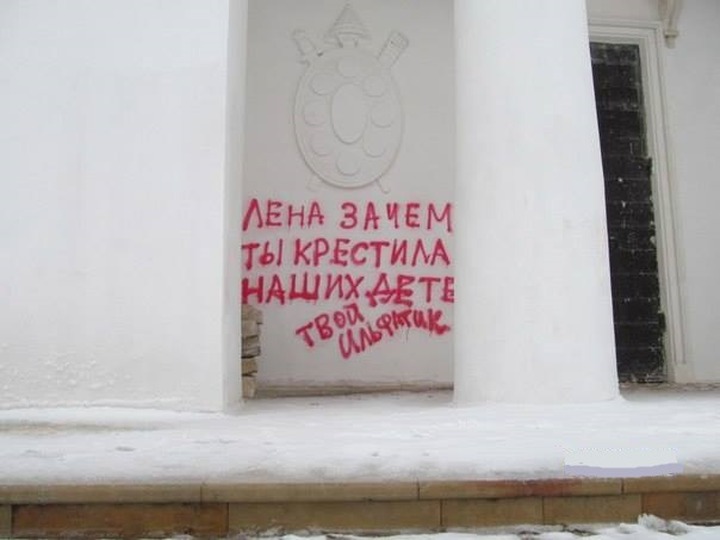 ЛЕНА ЗАЧЕМ
ТЫ КРЕСТИЛА
НАШИХ ДЕТЕ
ТВОЙ
ИЛЬФАТИК